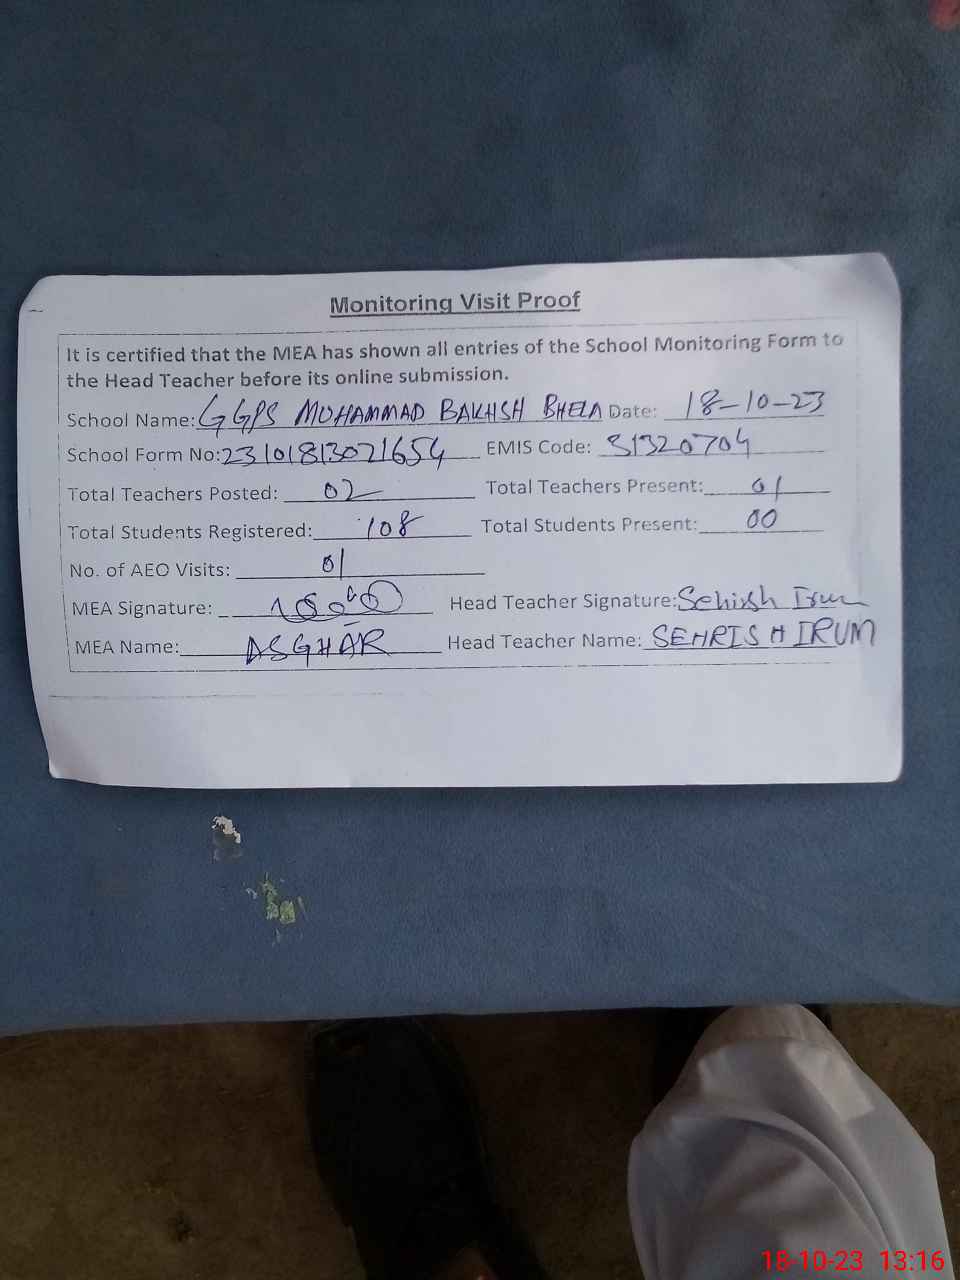 Monitoring Visit Proof
It is certified that the MEA has shown all entries of the School Monitoring Form to
the Head Teacher before its online submission.
School Name: GGPS MUHAMMAD BAKHSH BHELA Date: 18-10-23
School Form No: 23101813021654 EMIS Code: 31320704
Total Teachers Posted: 02 Total Teachers Present: 01
Total Students Registered: 108 Total Students Present: 00
No. of AEO Visits: 01
MEA Signature: Head Teacher Signature: Sehrish Irum
MEA Name: ASGHAR Head Teacher Name: SEHRISH IRUM
18-10-23 13:16